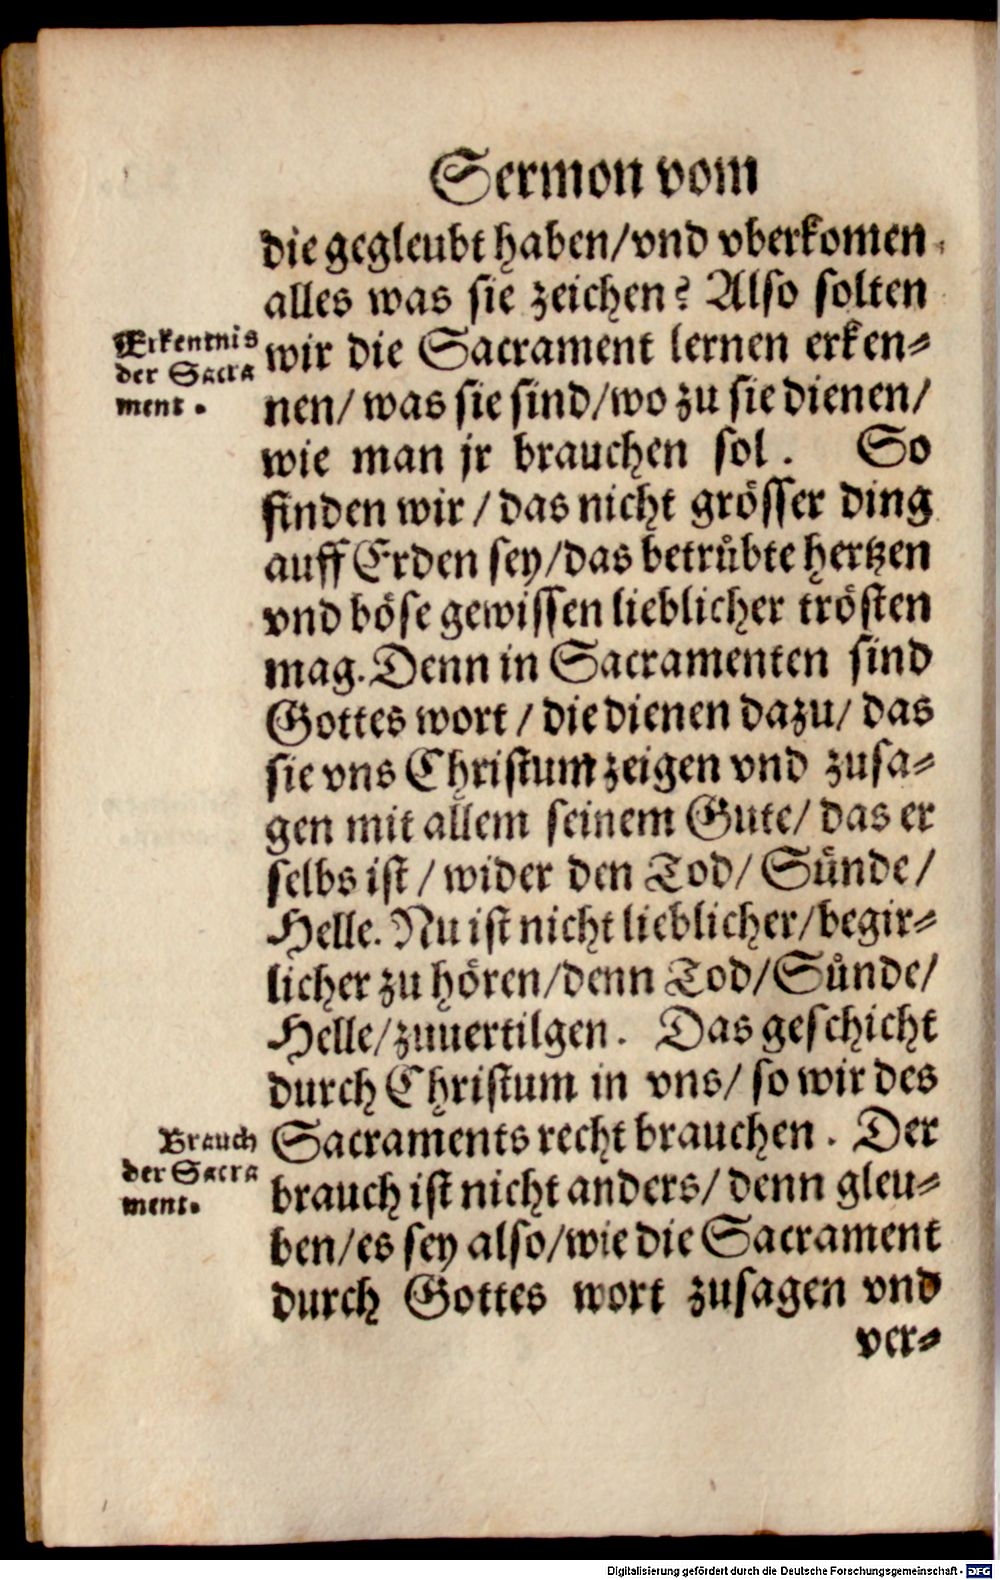 Sermon vom
die gegleubt haben/vnd vberkomen
alles was sie zeichen? Also solten
Erkentnis
der Sacra
ment.
wir die Sacrament lernen erken-
nen/ was sie sind/wo zu sie dienen/
wie man jr brauchen sol. So
finden wir / das nicht grösser ding
auff Erden sey/das betrübte hertzen
vnd böse gewissen lieblicher trösten
mag. Denn in Sacramenten sind
Gottes wort / die dienen dazu/ das
sie vns Christum zeigen vnd zusa-
gen mit allem seinem Gute/ das er
selbs ist / wider den Tod/ Sünde/
Helle. Nu ist nicht lieblicher/begir-
licher zu hören/denn Tod/Sünde/
Helle/zuuertilgen. Das geschicht
durch Christum in vns/ so wir des
Brauch
der Sacra
ment.
Sacraments recht brauchen. Der
brauch ist nicht anders/ denn gleu-
ben/es sey also/wie die Sacrament
durch Gottes wort zusagen vnd
ver-
Digitalisierung gefördert durch die Deutsche Forschungsgemeinschaft - DFG